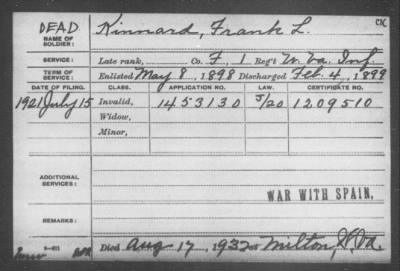 DEAD
NAME OF SOLDIER:
Kinnard, Frank L.
CK
SERVICE:
Late rank, Co. F, 1 Reg't W. Va. Inf.
TERM OF SERVICE:
Enlisted May 8, 1898 Discharged Feb. 4, 1899
DATE OF FILING. CLASS. APPLICATION NO. LAW. CERTIFICATE NO.
1921 July 15 Invalid, 1453130 J/20 1209510
Widow,
Minor,
ADDITIONAL SERVICES:
WAR WITH SPAIN,
REMARKS:
Died Aug 17, 1932 at Milton, W. Va.